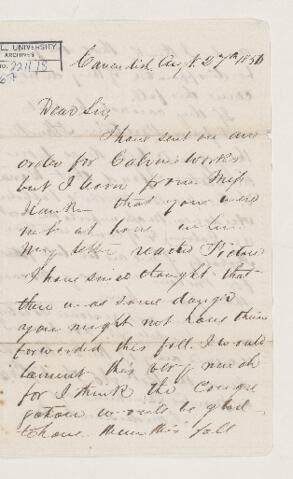 L UNIVERSITY
ARCHIVES
Cavendish Augt. 27th 1856
Dear Sir,
I have sent on an
order for Calvin's Works
but I learn from Miss
that you were
not at home when
my letter reached Pictou
I have since thought that
there was some danger
you might not have them
forwarded this fall. I would
lament this very much
for I think the Congre
gation would be glad
to have them this fall